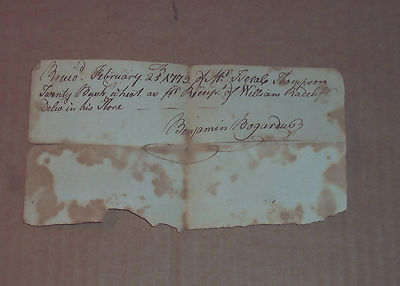 Receiv'd February 25 1773 of Mr Thompson
Twenty Bush wheat as pr Receipt of William Radclift
Deliv in his Store
Benjamin Bogardus